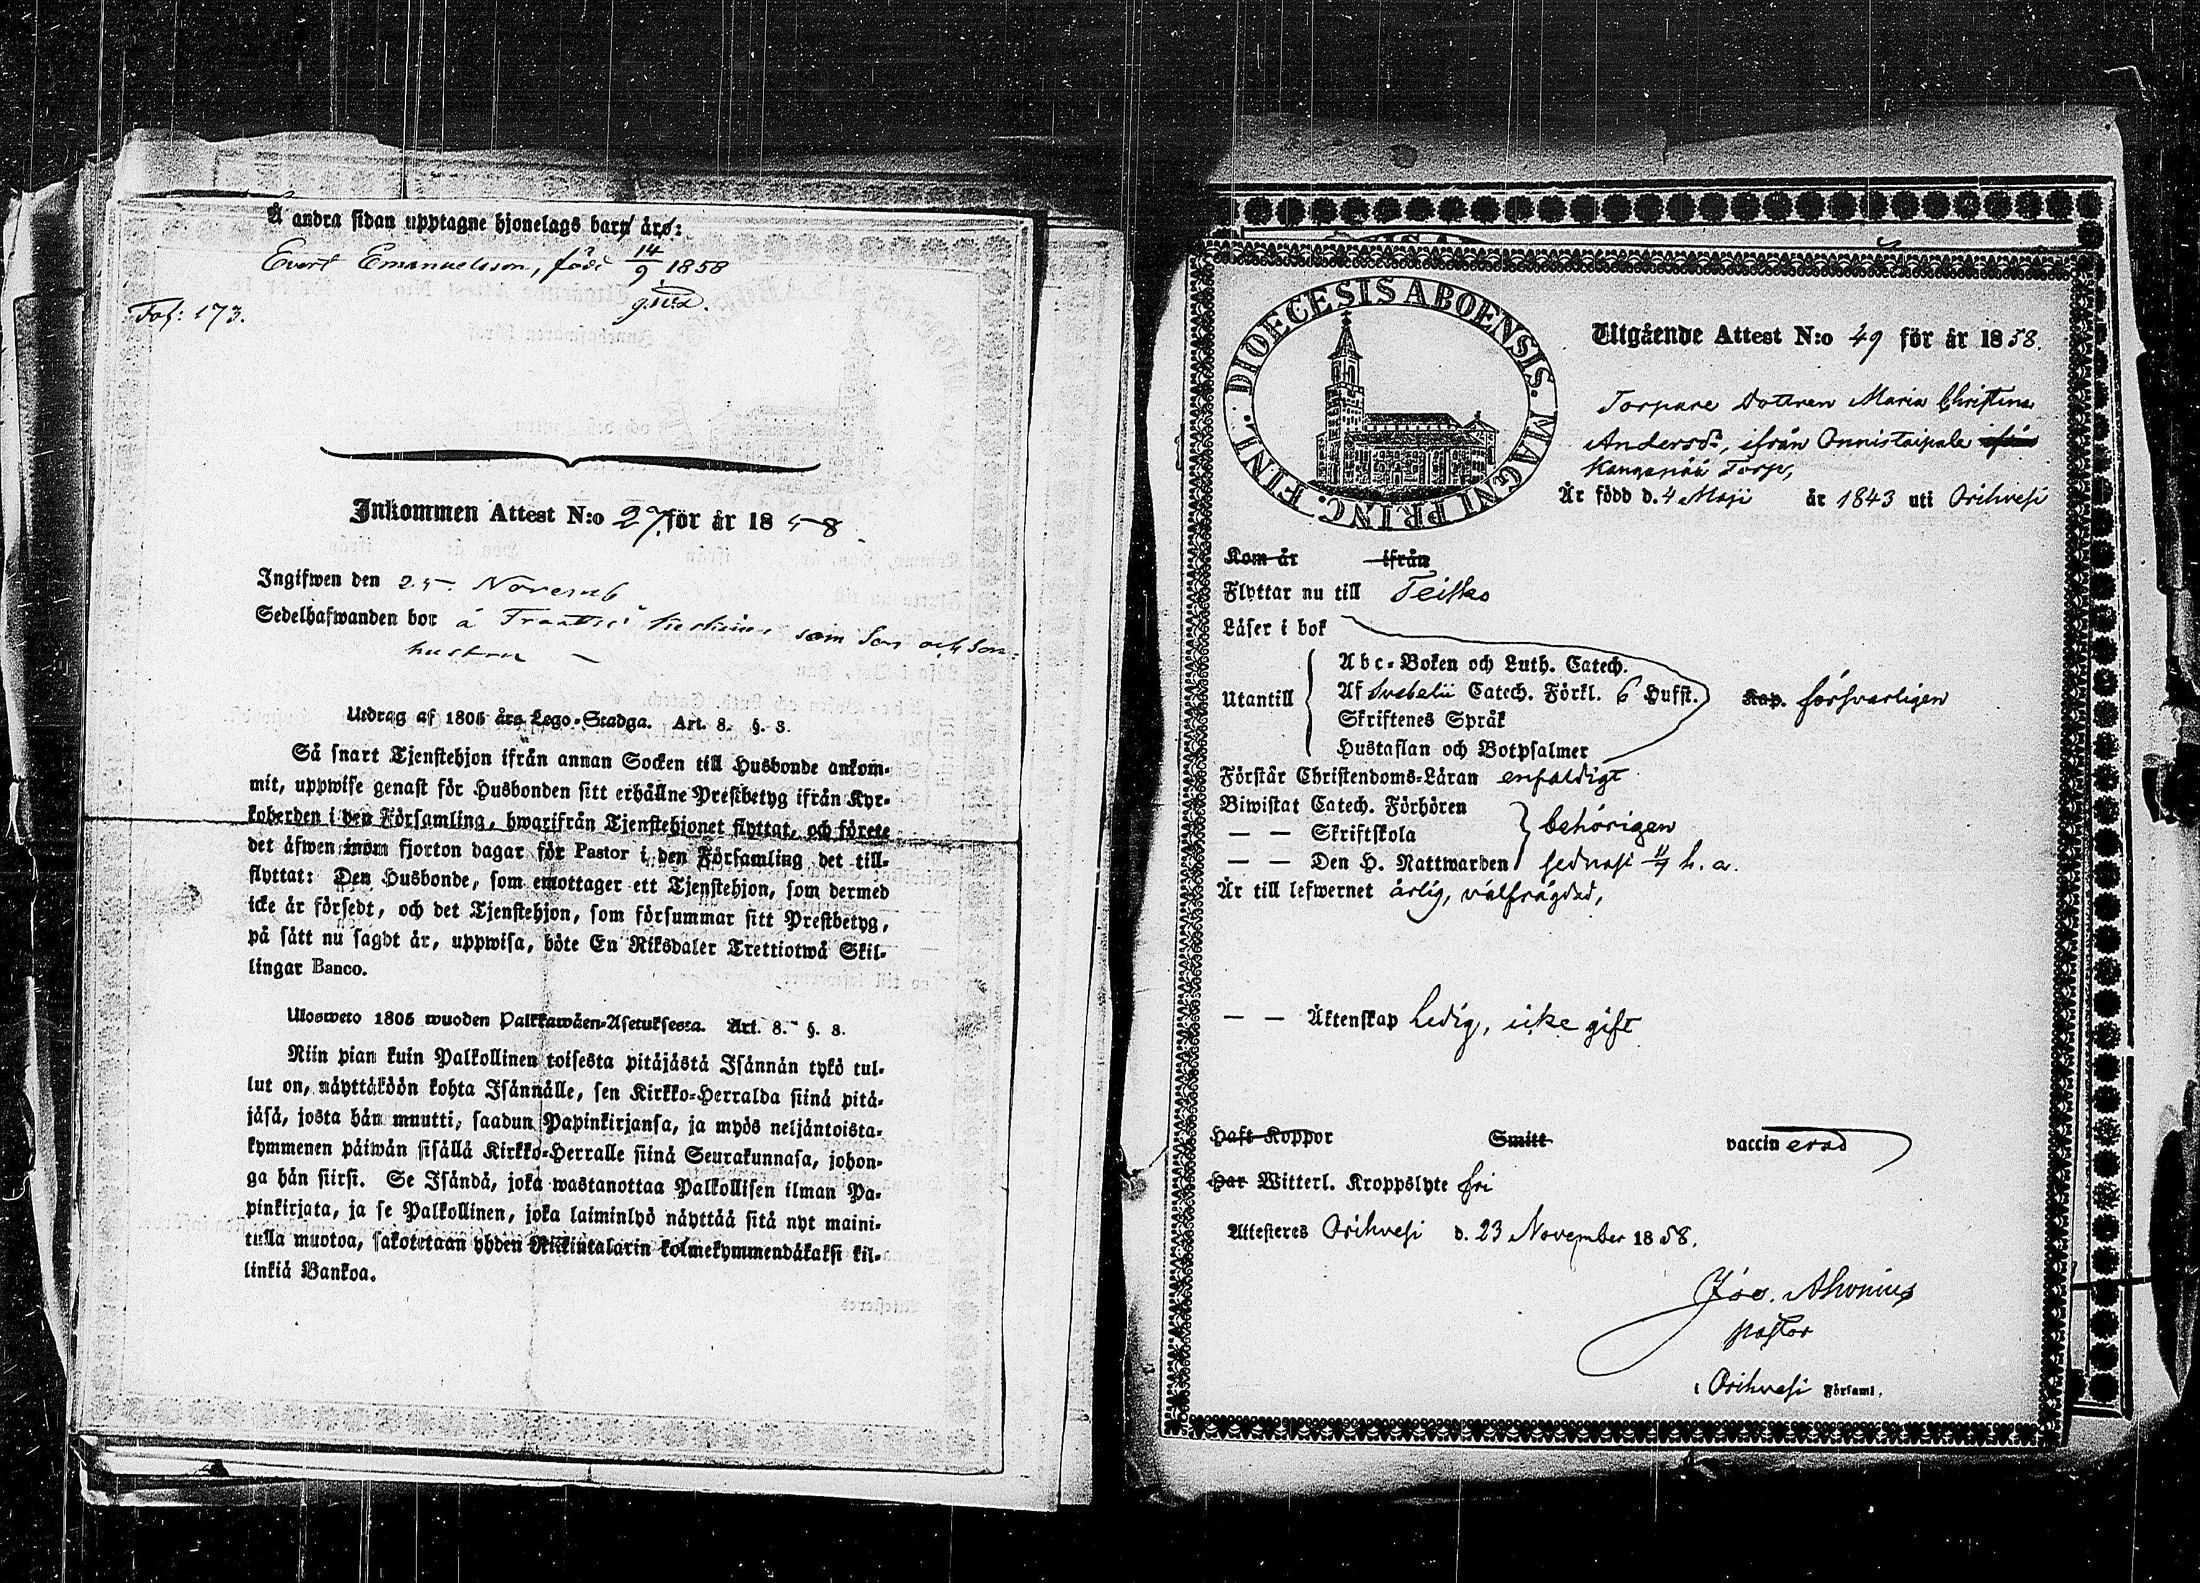 Å andra sidan upptagne hjonelags barn äro:
Evert Emanuelsson, född 14/9 1858
Fol: 173.
Inkommen Attest N:o 27 för år 1858
Ingifwen den 25 Novemb
Sedelhafwanden bor å som Son och Son-
hustru —
Utdrag af 1805 års Lego-Stadga. Art. 8. §. 3.
Så snart Tjenstehjon ifrån annan Socken till Husbonde ankom-
mit, uppwise genast för Husbonden sitt erhållne Prestbetyg ifrån Kyr-
koherden i den Församling, hwarifrån Tjenstehjonet flyttat, och förete
det äfwen inom fjorton dagar för Pastor i den Församling det till-
flyttat: Den Husbonde, som emottager ett Tjenstehjon, som dermed
icke är försedt, och det Tjenstehjon, som försummar sitt Prestbetyg,
på sätt nu sagdt är, uppwisa, böte En Riksdaler Trettiotwå Skil-
lingar Banco.
Ulosweto 1805 wuoden Palkkawäen-Asetuksesta. Art. 8. §. 3.
Niin pian kuin Palkollinen toisesta pitäjästä Isännän tykö tul-
lut on, näyttäköön kohta Isännälle, sen Kirkko-Herralda siinä pitä-
jäsä, josta hän muutti, saadun Papinkirjansa, ja myös neljäntoista-
kymmenen päiwän sisällä Kirkko-Herralle siinä Seurakunnasa, johon-
ga hän siirsi. Se Isändä, joka wastanottaa Palkollisen ilman Pa-
pinkirjata, ja se Palkollinen, joka laiminlyö näyttää sitä nyt maini-
tulla muotoa, sakotetaan yhden Rikintalarin kolmekymmendäkaksi kil-
linkiä Bankoa.
DIOECESIS ABOENSIS. MAGNI PRINC. FINL.
Utgående Attest N:o 49 för år 1858.
Torpare Dottren Maria Christina
Andersdr, ifrån Onnistaipale ifrån
Kangaspää Torp,
Är född d. 4 Maji år 1843 uti Orihvesi
Kom år ifrån
Flyttar nu till Teisko
Läser i bok
Abc-Boken och Luth. Catech.
Utantill Af Svebelii Catech. Förkl. 6 Hufst. Kap. försvarligen
Skriftenes Språk
Hustaflan och Botpsalmer
Förstår Christendoms-Läran enfaldigt
Biwistat Catech. Förhören
— — Skriftskola behörigen
— — Den H. Nattwarden sednast 11/7 h. a.
Är till lefwernet ärlig, välfrägdad,
— — Äktenskap ledig, icke gift
Haft Koppor Smitt vaccinerad
Har Witterl. Kroppslyte fri
Attesteres Orihvesi d. 23 November 1858.
Jos. Ahonius
pastor
i Orihvesi Församl.